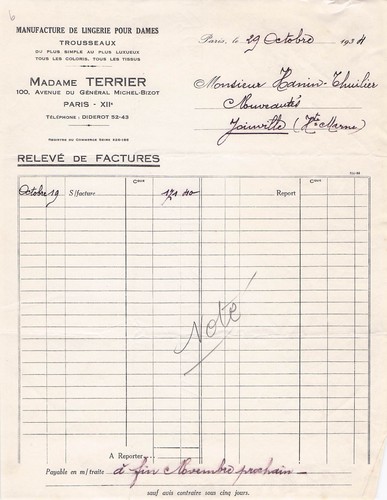 6
MANUFACTURE DE LINGERIE POUR DAMES
TROUSSEAUX
DU PLUS SIMPLE AU PLUS LUXUEUX
TOUS LES COLORIS, TOUS LES TISSUS
MADAME TERRIER
100, AVENUE DU GÉNÉRAL MICHEL-BIZOT
PARIS - XIIe
TÉLÉPHONE : DIDEROT 52-43
REGISTRE DU COMMERCE SEINE
Paris, le 29 Octobre 1934
Monsieur Hanin-Thuilier
Nouveautés
Joinville (Hte Marne)
RELEVÉ DE FACTURES
Octobre 19 S/facture 171 40 Report
Noté
A Reporter...
Payable en m/traite à fin Novembre prochain
sauf avis contraire sous cinq jours.